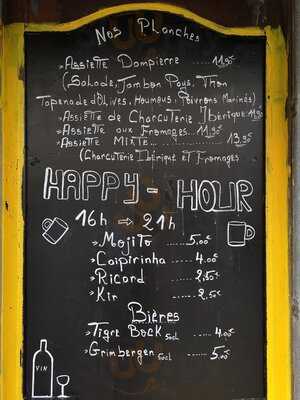 Nos Planches
Assiette Dompierre ..... 11,90
(Salade, Jambon Pays, Thon
Tapenade d'Olives, Houmous, Poivrons Marinés)
Assiette de Charcuterie Ibérique 11,90
Assiette aux Fromages... 11,90
Assiette Mixte ........ 13,90
(Charcuterie Ibérique et Fromages
HAPPY - HOUR
16h ⇨ 21h
Mojito ...... 5,00€
Caipirinha .... 4.00€
Ricard ..... 2,50€
Kir ..... 2.50€
Bières
Tigre Bock 50cl .... 4.00€
Grimbergen 50cl ..... 5,00€
VIN